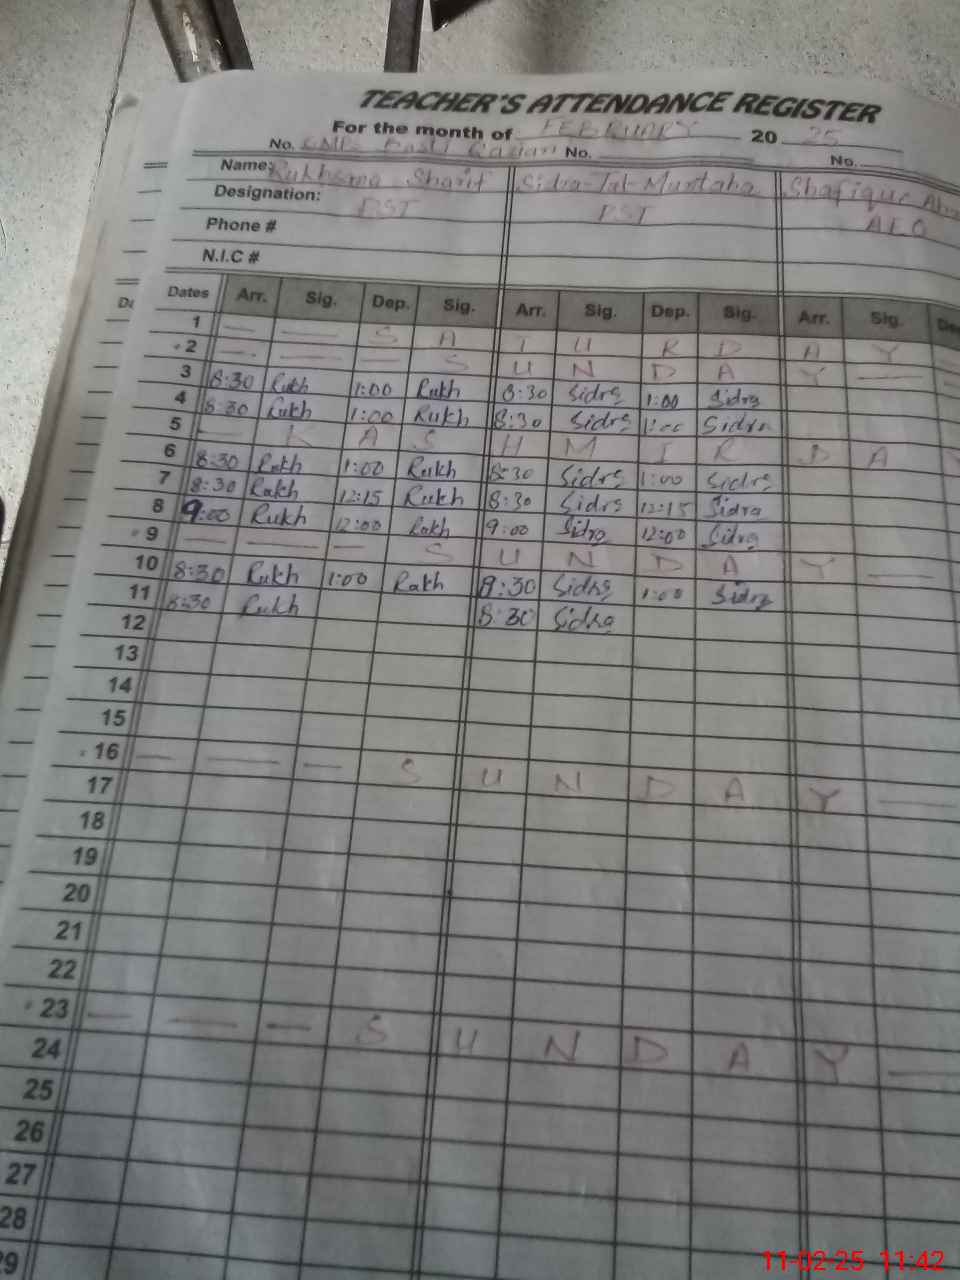 TEACHER'S ATTENDANCE REGISTER
For the month of FEBRUARY 2025
No. GMPS Basti Qazian No. No.
Name: Rukhsana Sharif Sidra-Tul-Muntaha Shafique
Designation: PST PST AEO
Phone #
N.I.C #
Dates Arr. Sig. Dep. Sig. Arr. Sig. Dep. Sig. Arr. Sig. De
1 — — S A T U R D A Y —
2 — — — S U N D A Y — —
3 8:30 Rukh 1:00 Rukh 8:30 Sidra 1:00 Sidra
4 8:30 Rukh 1:00 Rukh 8:30 Sidra 1:00 Sidra
5 — K A S H M I R D A Y
6 8:30 Rukh 1:00 Rukh 8:30 Sidra 1:00 Sidra
7 8:30 Rukh 12:15 Rukh 8:30 Sidra 12:15 Sidra
8 9:00 Rukh 12:00 Rukh 9:00 Sidra 12:00 Sidra
9 — — — S U N D A Y —
10 8:30 Rukh 1:00 Rukh 8:30 Sidra 1:00 Sidra
11 8:30 Rukh 8:30 Sidra
12
13
14
15
16 — — — S U N D A Y —
17
18
19
20
21
22
23 — — — S U N D A Y —
24
25
26
27
28
29
11-02-25 11:42